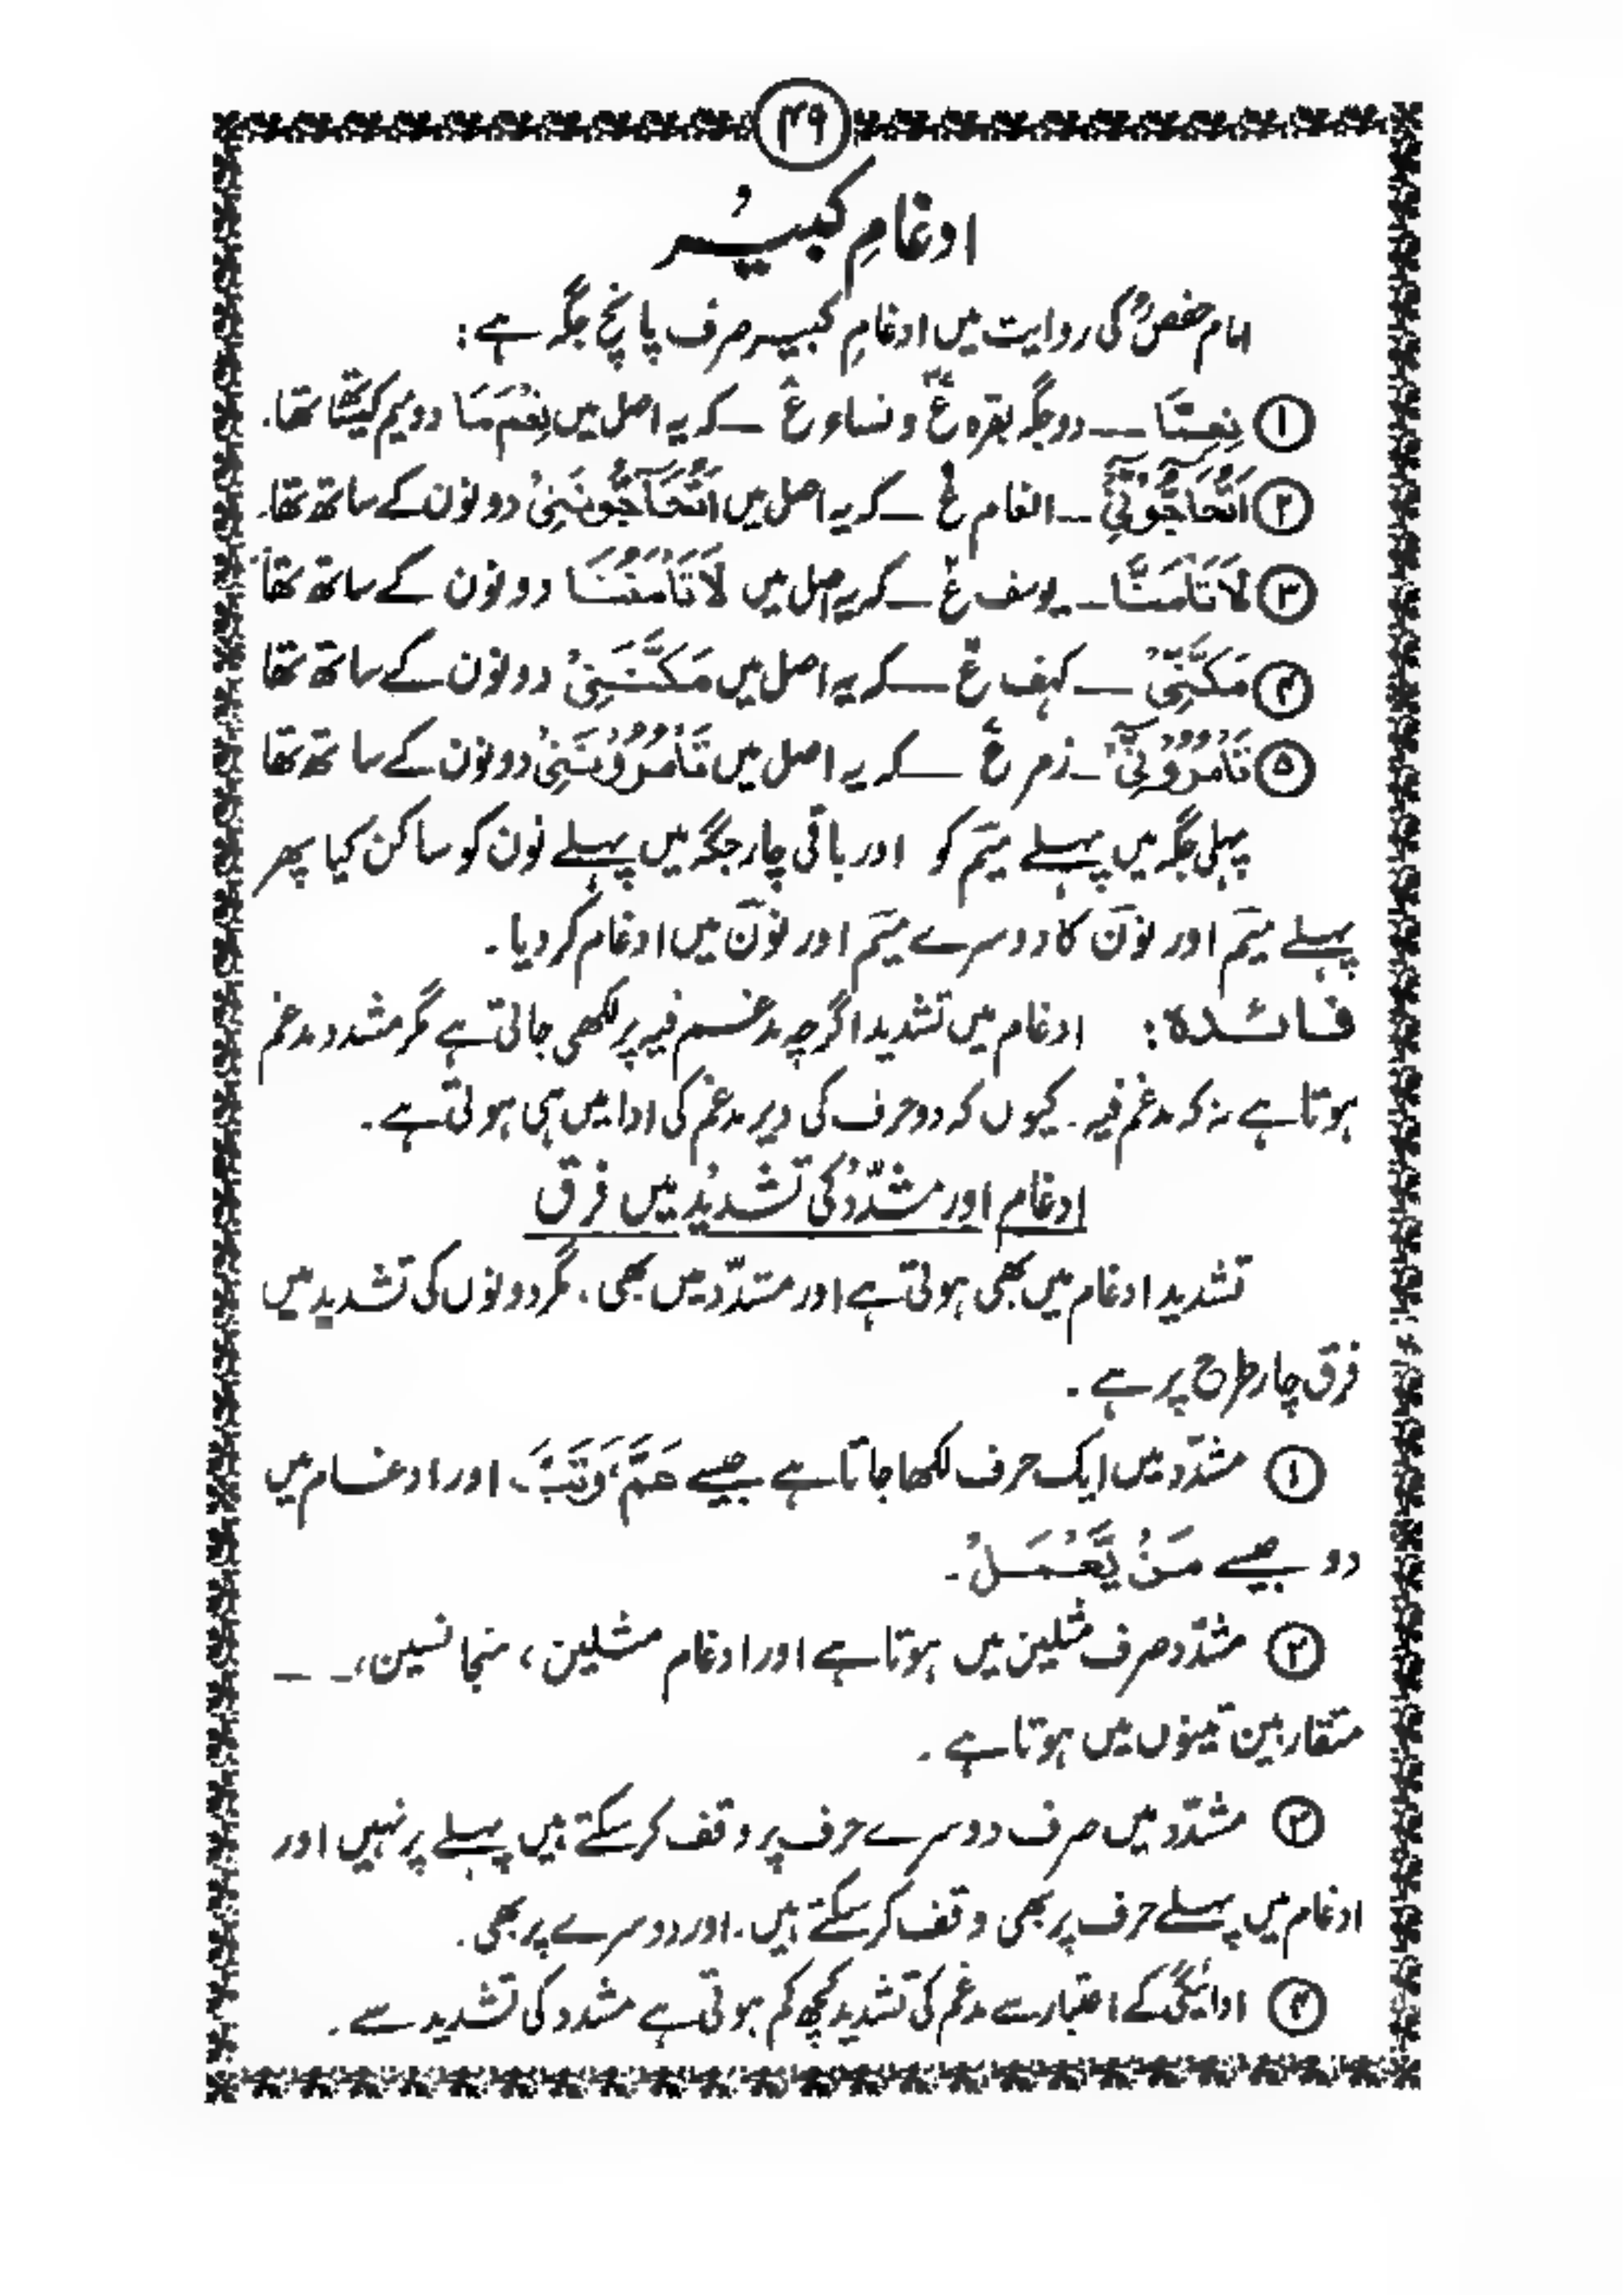 ۴۹
ادغامِ کبیر
امام حفصؒ کی روایت میں ادغامِ کبیر صرف پانچ جگہ ہے :
① نِعِمَّا ـــ دو جگہ بقرہ ع و نساء ع ـــ کہ یہ اصل میں نِعْمَ مَا دو میم کیساتھ تھا۔
② اَتُحَآجُّوْٓنِّیْ ـــ انعام ع ـــ کہ یہ اصل میں اَتُحَآجُّوْنَنِیْ دو نون کے ساتھ تھا۔
③ لَا تَاْمَنَّا ـــ یوسف ع ـــ کہ یہ اصل میں لَا تَاْمَنُنَا دو نون کے ساتھ تھا۔
④ مَکَّنِّیْ ـــ کہف ع ـــ کہ یہ اصل میں مَکَّنَنِیْ دو نون کے ساتھ تھا
⑤ تَاْمُرُوْٓنِّیْٓ ـــ زمر ع ـــ کہ یہ اصل میں تَاْمُرُوْنَنِیْ دو نون کے ساتھ تھا
پہلی جگہ میں پہلے میم کو اور باقی چار جگہ میں پہلے نون کو ساکن کیا پھر
پہلے میم اور نون کا دوسرے میم اور نون میں ادغام کر دیا ۔
فائدہ : ادغام میں تشدید اگرچہ مدغم فیہ پر لکھی جاتی ہے مگر مشدد مدغم
ہوتا ہے نہ کہ مدغم فیہ ۔ کیوں کہ دو حرف کی دیر مدغم کی ادا میں ہی ہوتی ہے ۔
ادغام اور مشدّد کی تشدید میں فرق
تشدید ادغام میں بھی ہوتی ہے اور مشدّد میں بھی ، مگر دونوں کی تشدید میں
فرق چار طرح پر ہے ۔
① مشدّد میں ایک حرف لکھا جاتا ہے جیسے هَمَّ، وَتَبَّ اور ادغام میں
دو جیسے مَنْ یَّعْمَلْ ۔
② مشدّد صرف مثلین میں ہوتا ہے اور ادغام مثلین ، متجانسین، ـــ
متقاربین تینوں میں ہوتا ہے ۔
③ مشدّد میں صرف دوسرے حرف پر وقف کر سکتے ہیں پہلے پر نہیں اور
ادغام میں پہلے حرف پر بھی وقف کر سکتے ہیں ۔ اور دوسرے پر بھی ۔
④ ادائیگی کے اعتبار سے مدغم کی تشدید کچھ کم ہوتی ہے مشدد کی تشدید سے ۔